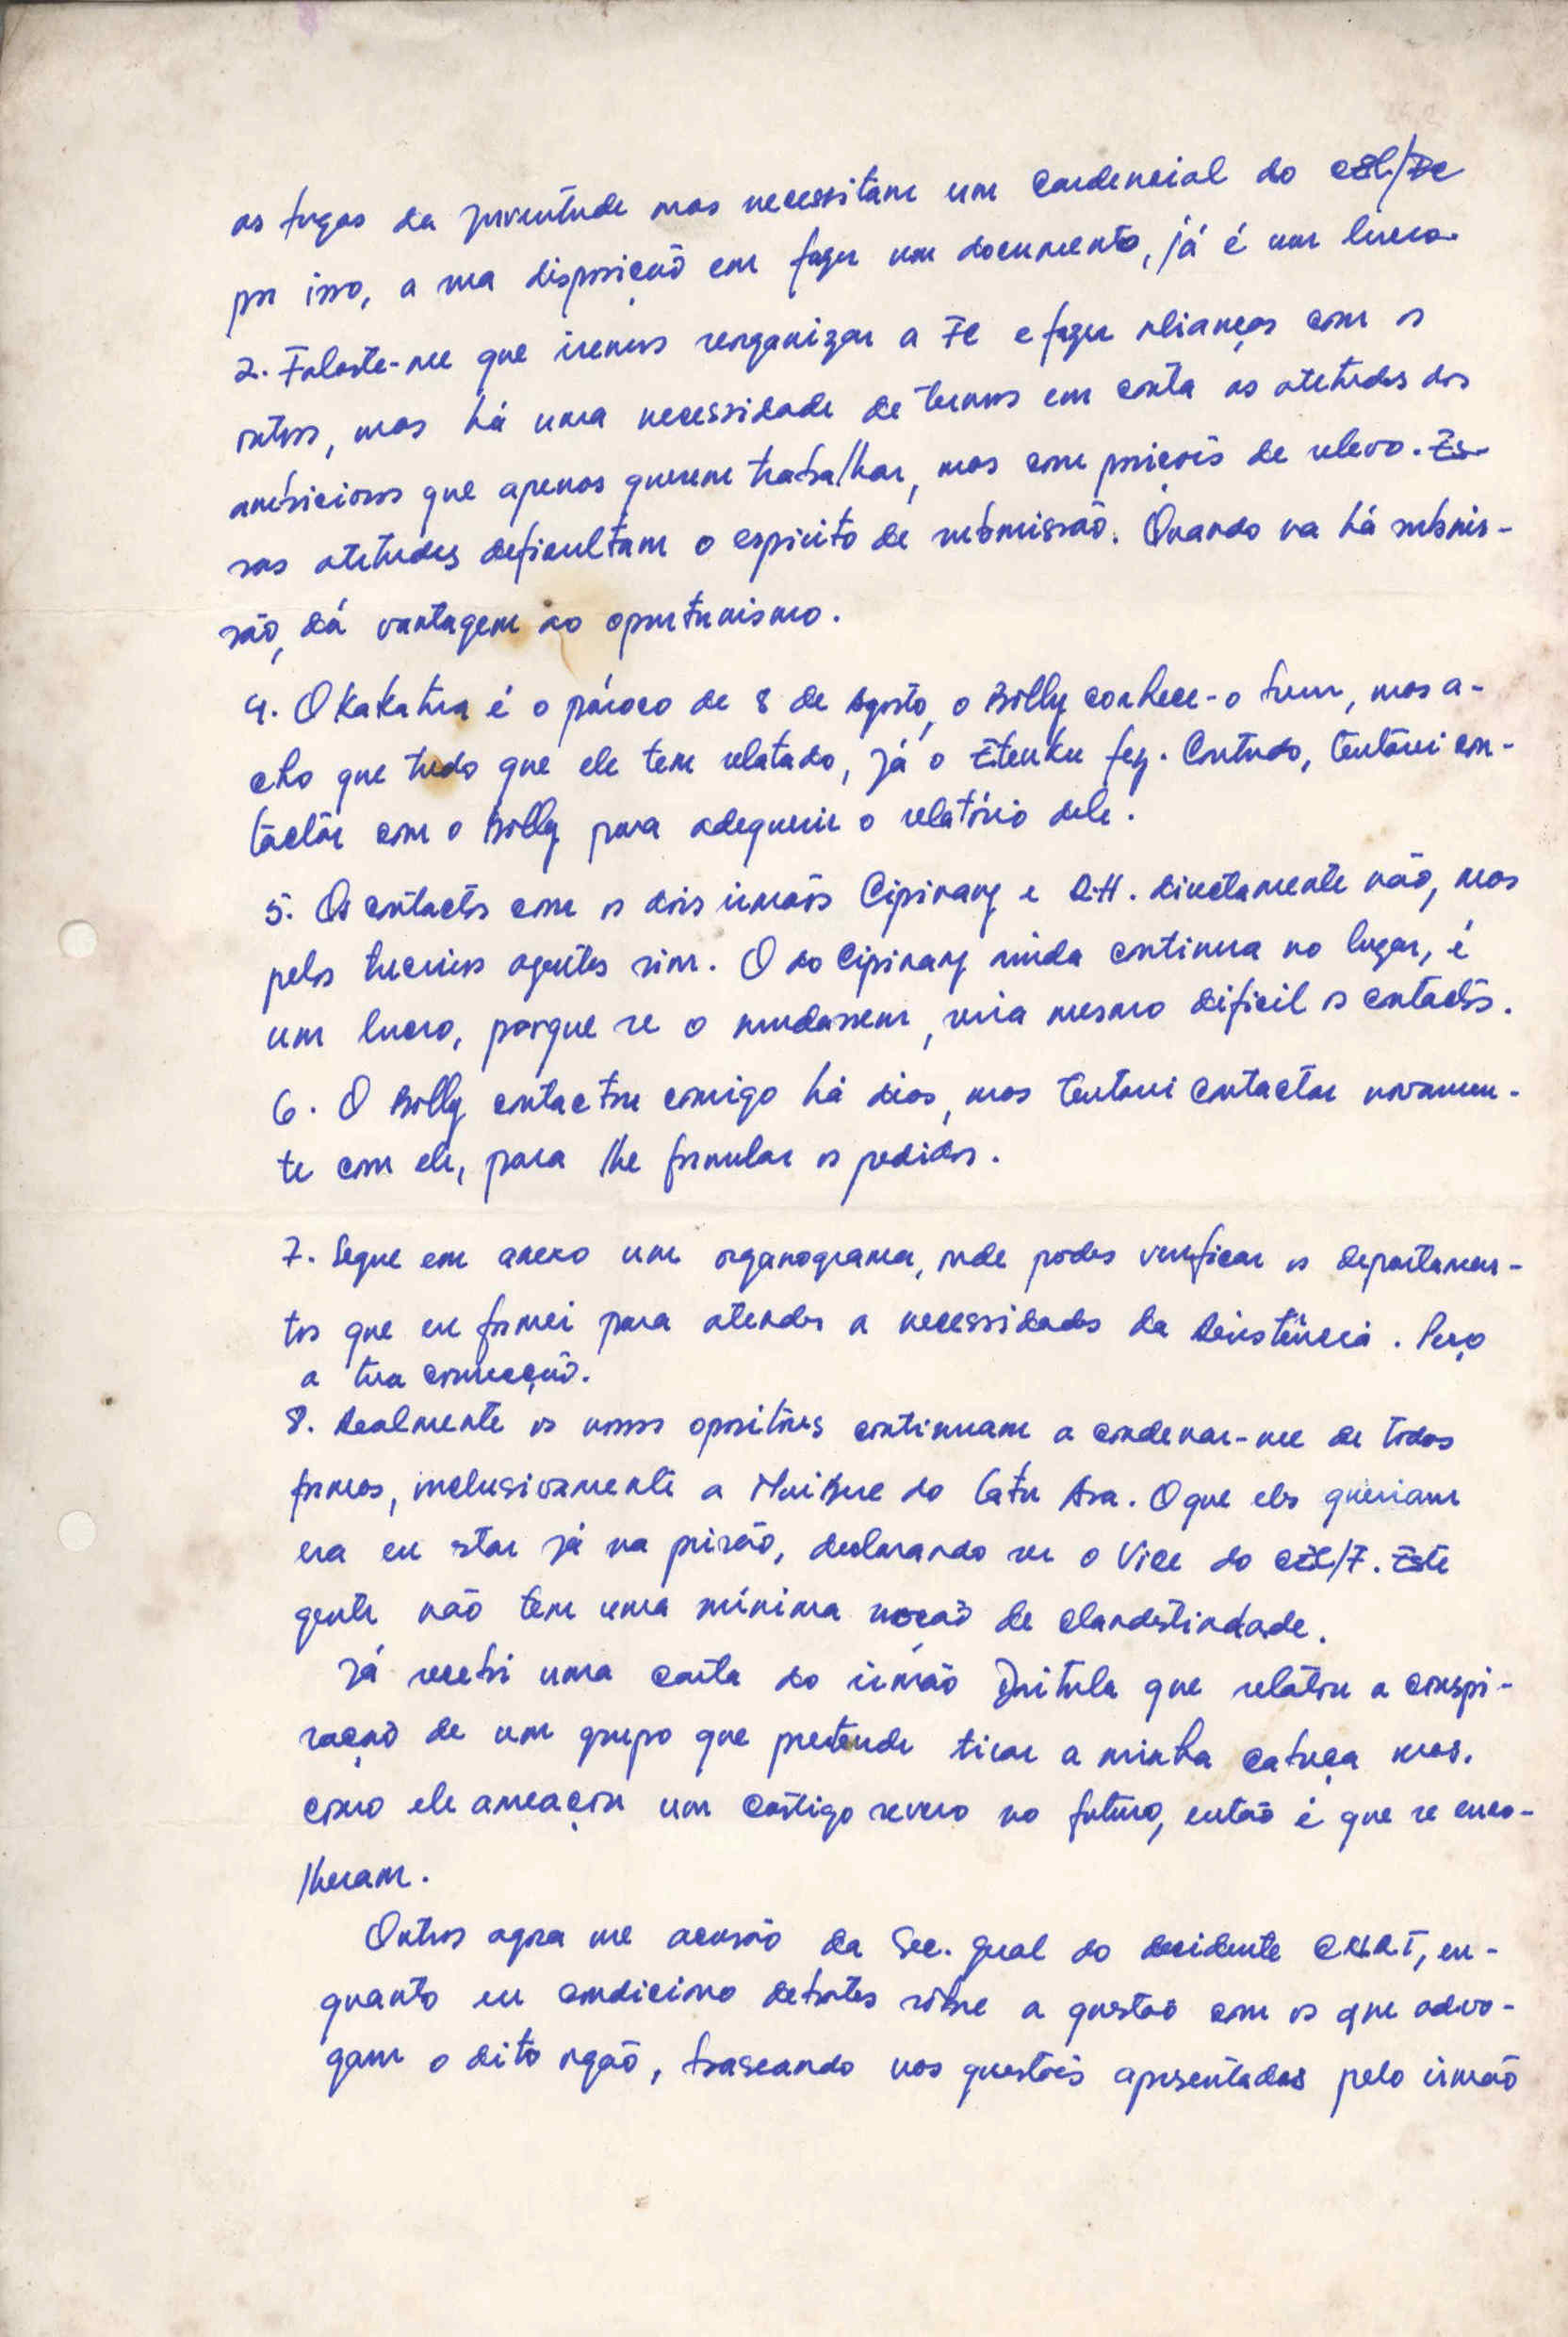 as fugas da juventude mas necessitam um credencial do CEL/FC
por isso, a sua disposição em fazer um documento, já é um lucro.
2. Falaste-me que iremos reorganizar a FC e fazer alianças com os
outros, mas há uma necessidade de termos em conta as atetudes dos
ambiciosos que apenas querem trabalhar, mas com posições de relevo. Es-
sas atetudes deficultam o espirito de submissão. Quando na há submis-
são, dá vantagem ao oportunismo.
4. O Kakatua é o pároco de 8 de Agosto, o Billy conhece-o bem, mas a-
cho que tudo que ele tem relatado, já o Eteuku fez. Contudo, tentarei con-
tactar com o Billy para adequerir o relatório dele.
5. Os contactos com os dois irmãos Cipinang e R.H. directamente não, mas
pelos terceiros agentes sim. O do Cipinang ainda continua no lugar, é
um lucro, porque se o mudassem, seria mesmo dificil os contactos.
6. O Billy contactou comigo há dias, mas tentarei contactar novamen-
te com ele, para lhe formular os pedidos.
7. Segue em anexo um organograma, onde podes verificar os departamen-
tos que eu formei para atender a necessidades da Resistência. Peço
a tua correcção.
8. Realmente os nossos opositores continuam a condenar-me de todas
formas, inclusivamente a Mui Bure do Catu Asa. O que eles queriam
era eu star já na prisão, declarando ser o Vice do CEL/F. Este
gente não tem uma mínima noção de clandestindade.
Já recebi uma carta do irmão Daitula que relatou a conspi-
ração de um grupo que pretende tirar a minha cabeça mas.
como ele ameaçou um castigo severo no futuro, então é que se enco-
lheram.
Outros agora me acusão da Sec. Geral do decidente CNRT, en-
quanto eu condiciono debates sobre a questão com os que advo-
gam o dito orgão, baseando nas questões apresentadas pelo irmão